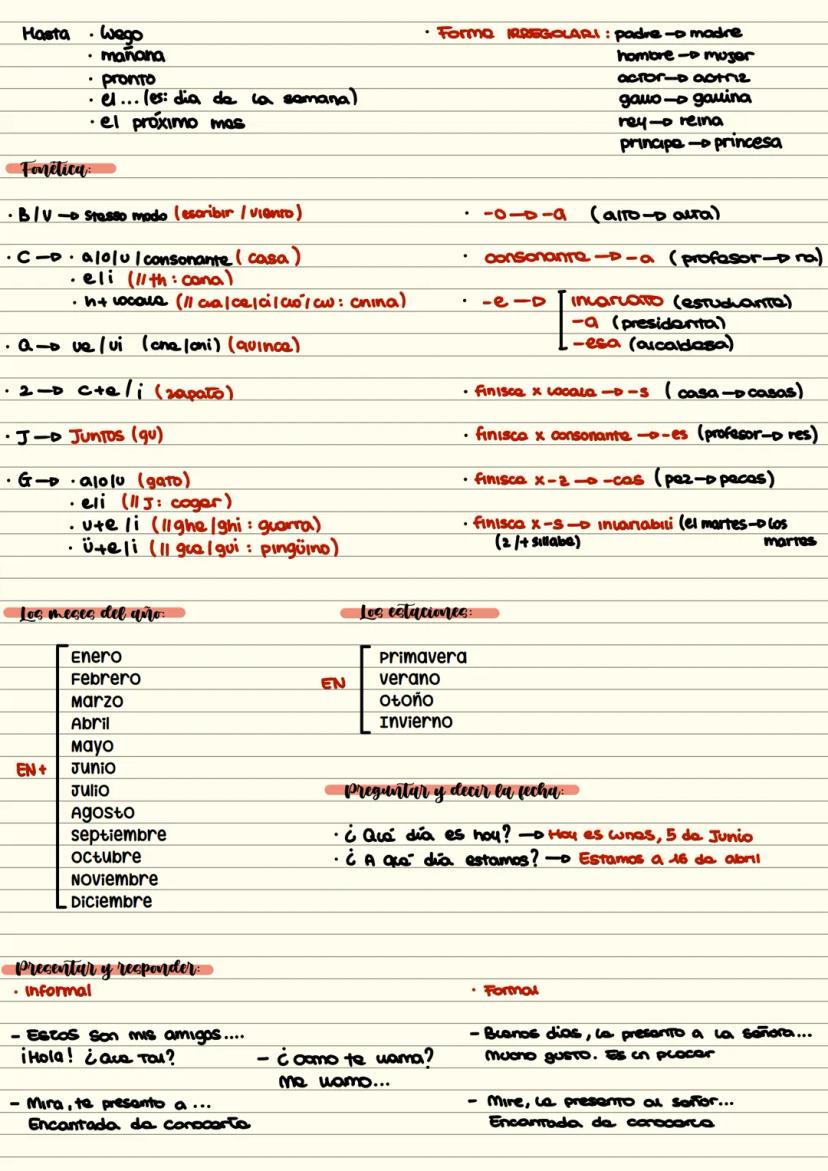 Hasta · luego
· mañana
· pronto
· el... (es: dia de la semana)
· el próximo mes
· Forme IRREGOLARI: padre → madre
hombre → mujer
actor → actriz
gallo → gallina
rey → reina
principe → princesa
Fonética:
· B/V → stesso modo (escribir / viento)
· C → · a/o/u/consonante (casa)
· e/i (// th: cena)
· h + vocale (// cia/ce/ci/cio/ciu: china)
· Q → ue/ui (che/chi) (quince)
· Z → c+e/i (zapato)
· J → Juntos (gu)
· G → · a/o/u (gato)
· e/i (// J: coger)
· u+e/i (// ghe/ghi: guerra)
· ü+e/i (// gue/gui: pingüino)
· -o → -a (alto → alta)
· consonante → -a (profesor → ra)
· -e → invariato (estudiante)
-a (presidenta)
-esa (alcaldesa)
· finisce x vocale → -s (casa → casas)
· finisce x consonante → -es (profesor → res)
· finisce x -z → -ces (pez → peces)
· finisce x -s → invariabili (el martes → los martes
(2/+ sillabe)
Los meses del año:
EN +
Enero
Febrero
Marzo
Abril
Mayo
Junio
Julio
Agosto
septiembre
Octubre
Noviembre
Diciembre
Los estaciones:
EN
Primavera
verano
Otoño
Invierno
Preguntar y decir la fecha:
· ¿Qué día es hoy? → Hoy es lunes, 5 de Junio
· ¿A qué día estamos? → Estamos a 16 de abril
Presentar y responder:
· Informal
- Estos son mis amigos....
¡Hola! ¿Que Tal?
- ¿como te llama?
Me llamo...
- Mira, te presento a ...
Encantada de conocerte
· Formal
- Buenos dias, le presento a la señora...
Mucho gusto. Es un placer
- Mire, le presento al señor...
Encantada de conocerle